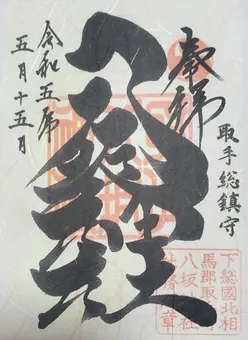 奉拝
取手総鎮守
八坂神社
令和五年
五月十五日
下総国北相
馬郡取
八坂
社務
章